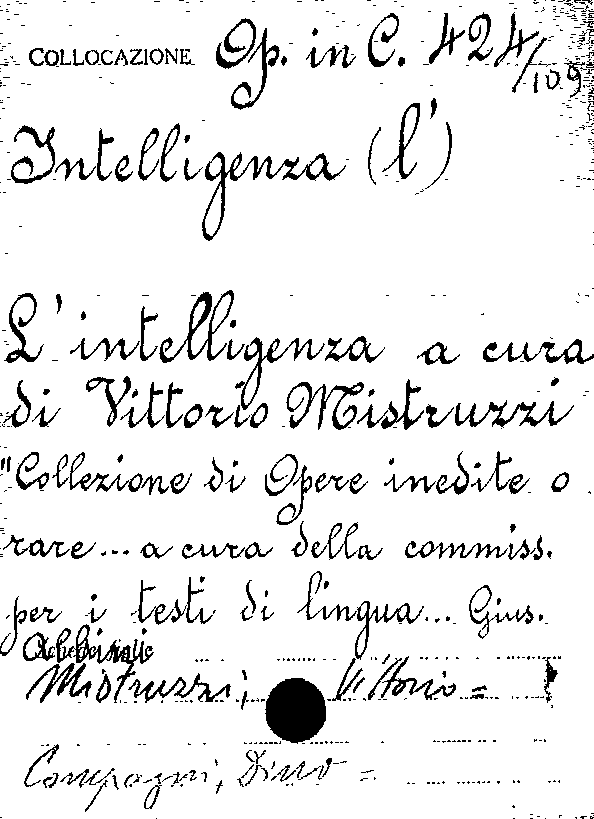 COLLOCAZIONE Op. in C. 424/109
Intelligenza (l')
L'intelligenza a cura
di Vittorio Mistruzzi
"Collezione di Opere inedite o
rare... a cura della commiss.
per i testi di lingua... Gius.
Mistruzzi, Vittorio =
Compagni, Dino =